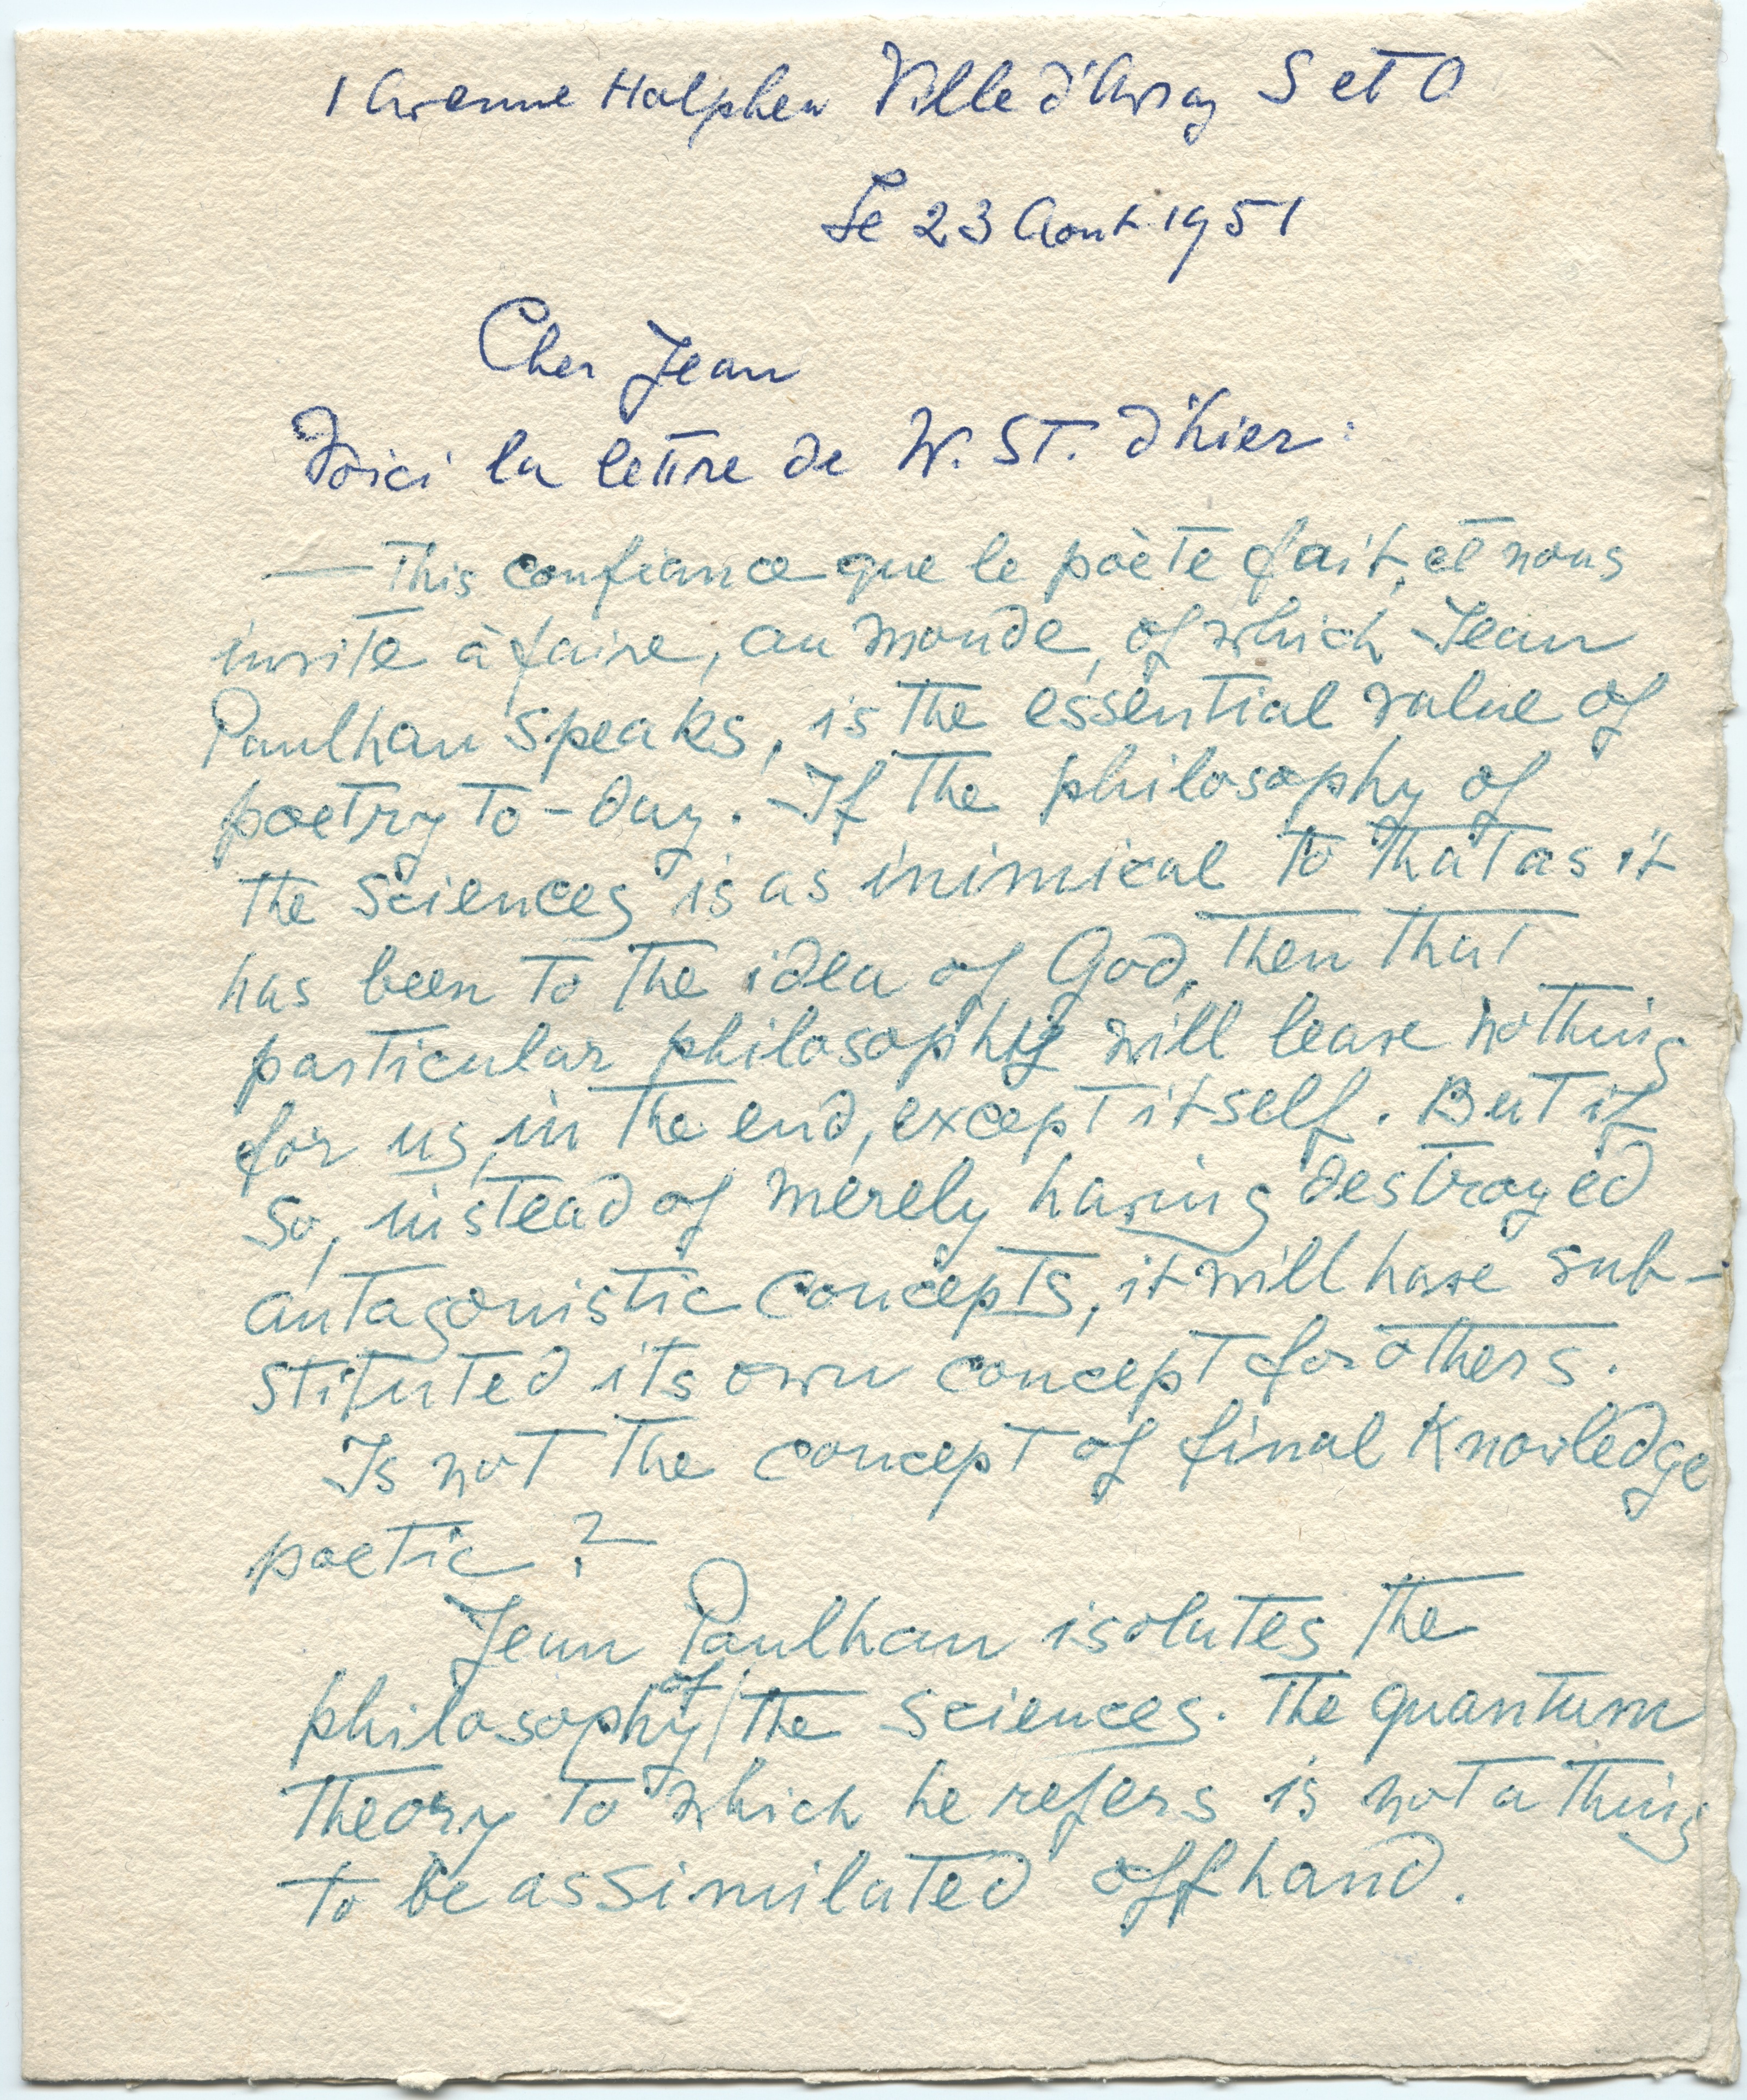 1 Avenue Halphen Ville d'Avray S et O
Le 23 Aout 1951
Cher Jean
Voici la lettre de W. ST. d'hier:
— This confiance que le poète fait, et nous
invite à faire, au monde, of which Jean
Paulhan speaks, is the essential value of
poetry to-day. If the philosophy of
the sciences is as inimical to that as it
has been to the idea of God, then that
particular philosophy will leave nothing
for us, in the end, except itself. But if
so, instead of merely having destroyed
antagonistic concepts, it will have sub-
stituted its own concept for others.
Is not the concept of final knowledge
poetic ?
Jean Paulhan isolates the
philosophy of the sciences. The quantum
theory to which he refers is not a thing
to be assimilated offhand.